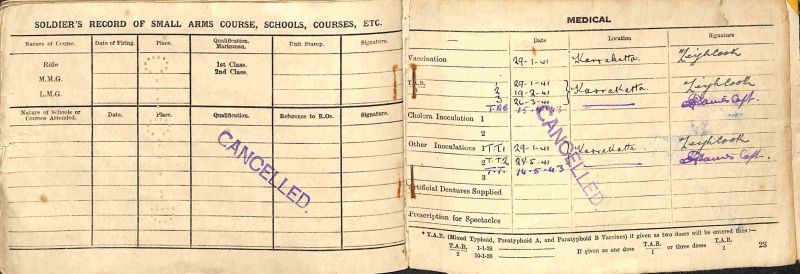 SOLDIER'S RECORD OF SMALL ARMS COURSE, SCHOOLS, COURSES, ETC.
Nature of Course. Date of Firing. Place. Qualification. Marksman. Unit Stamp. Signature.
Rifle 1st Class.
M.M.G. 2nd Class.
L.M.G.
Nature of Schools or Courses Attended. Date. Place. Qualification. Reference to R.Os. Signature.
CANCELLED.
MEDICAL
— Date Location Signature
Vaccination 29-1-41 Karrakatta
T.A.B. 1 29-1-41 Karrakatta
2 19-2-41
3 26-3-41 Capt.
T.A.B 15-5-43
Cholera Inoculation 1
2
Other Inoculations 1 T.T.1 29-1-41 Karrakatta
2 T.T.2 28-5-41 Capt.
T.T. 14-5-43
3
CANCELLED.
Artificial Dentures Supplied
Prescription for Spectacles
* T.A.B. (Mixed Typhoid, Paratyphoid A, and Paratyphoid B Vaccines) if given as two doses will be entered thus :—
T.A.B. 1-1-38
2 10-1-38
If given as one dose T.A.B. 1 or three doses T.A.B. 2
23